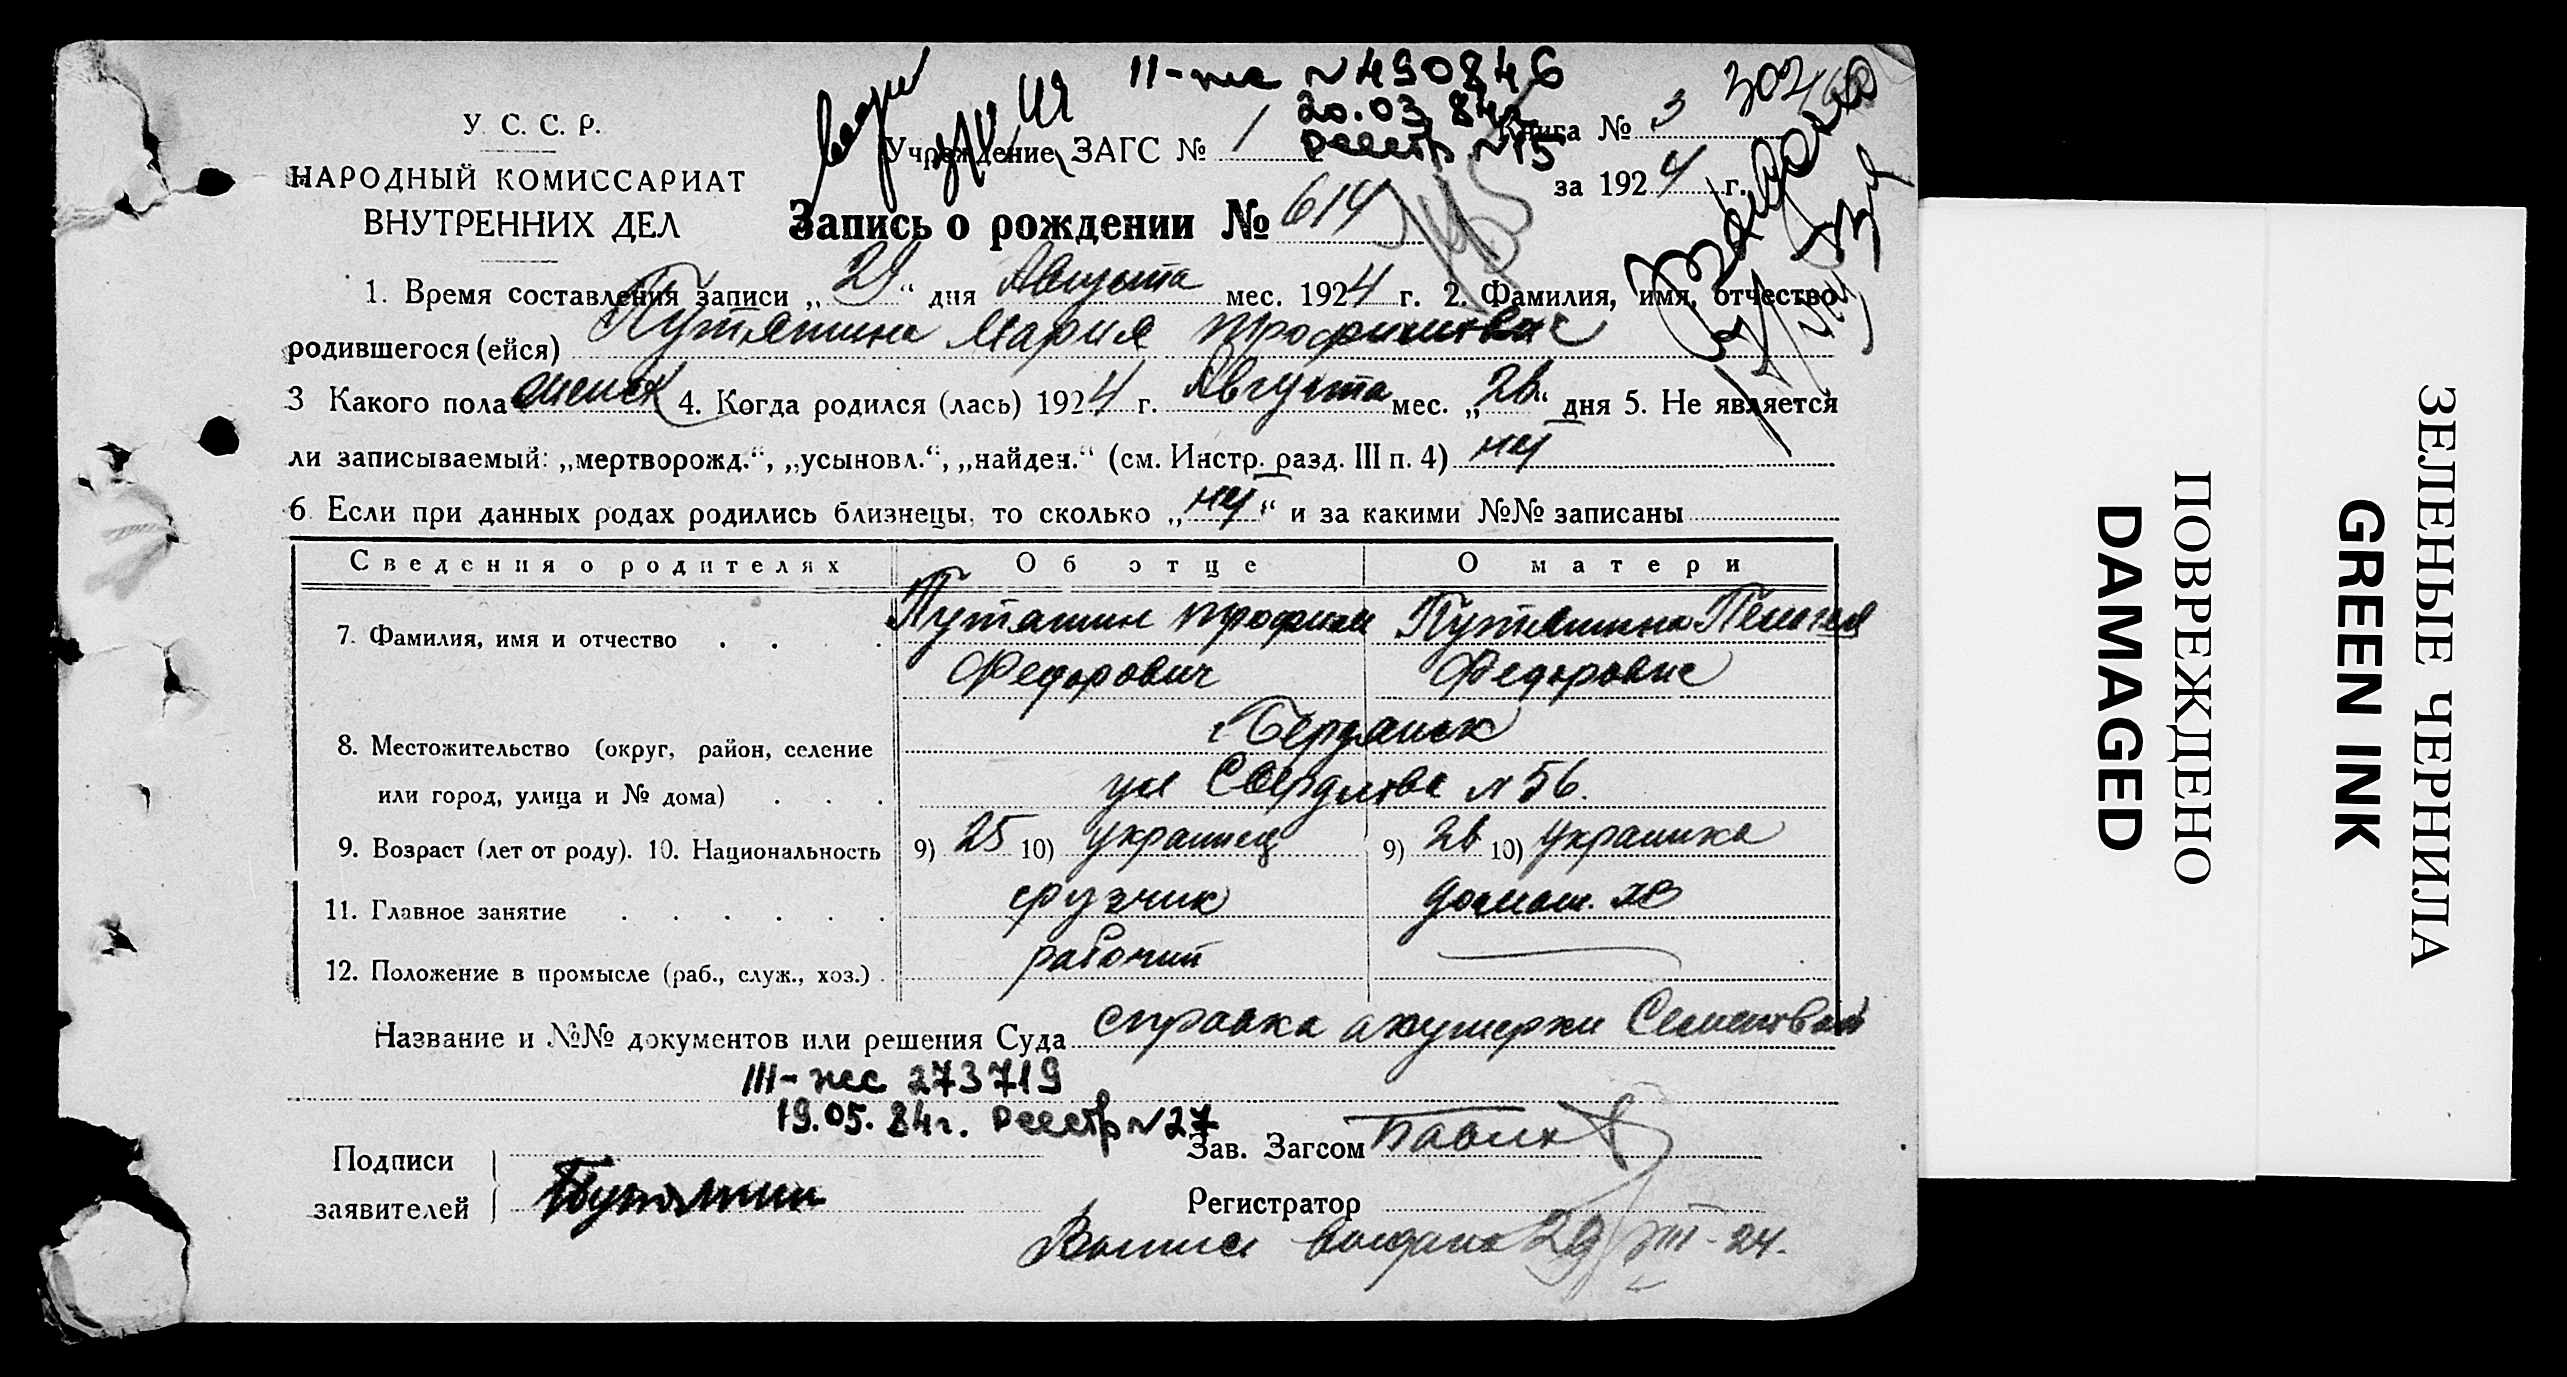 II-жс №490846
20.03.84г.
Реестр №15
3026
У. С. С. Р.
НАРОДНЫЙ КОМИССАРИАТ
ВНУТРЕННИХ ДЕЛ
Учреждение ЗАГС № 1
Книга № 3
за 1924 г.
Запись о рождении № 614
1. Время составления записи „29“ дня Августа мес. 1924 г. 2. Фамилия, имя, отчество
родившегося (ейся) Путяшина Мария Трофимовна
3 Какого пола женск 4. Когда родился (лась) 1924 г. Августа мес. „26“ дня 5. Не является
ли записываемый: „мертворожд.“, „усыновл.“, „найден.“ (см. Инстр. разд. III п. 4) нет
6. Если при данных родах родились близнецы, то сколько „нет“ и за какими №№ записаны
Сведения о родителях Об отце О матери
7. Фамилия, имя и отчество Путяшин Трофим Путяшина Пелагея
Федорович Федоровна
г. Бердянск
8. Местожительство (округ, район, селение
или город, улица и № дома) ул Свердлова №56.
9. Возраст (лет от роду). 10. Национальность 9) 25 10) украинец 9) 26 10) украинка
11. Главное занятие грузчик домаш. хоз
12. Положение в промысле (раб., служ., хоз.) рабочий
Название и №№ документов или решения Суда справка акушерки Семеновой
III-жс 273719
19.05.84г. Реестр №27
Подписи
заявителей Путяшин
Зав. Загсом
Регистратор
Выпись выдана 29/VIII-24.
ПОВРЕЖДЕНО
DAMAGED
ЗЕЛЕНЫЕ ЧЕРНИЛА
GREEN INK